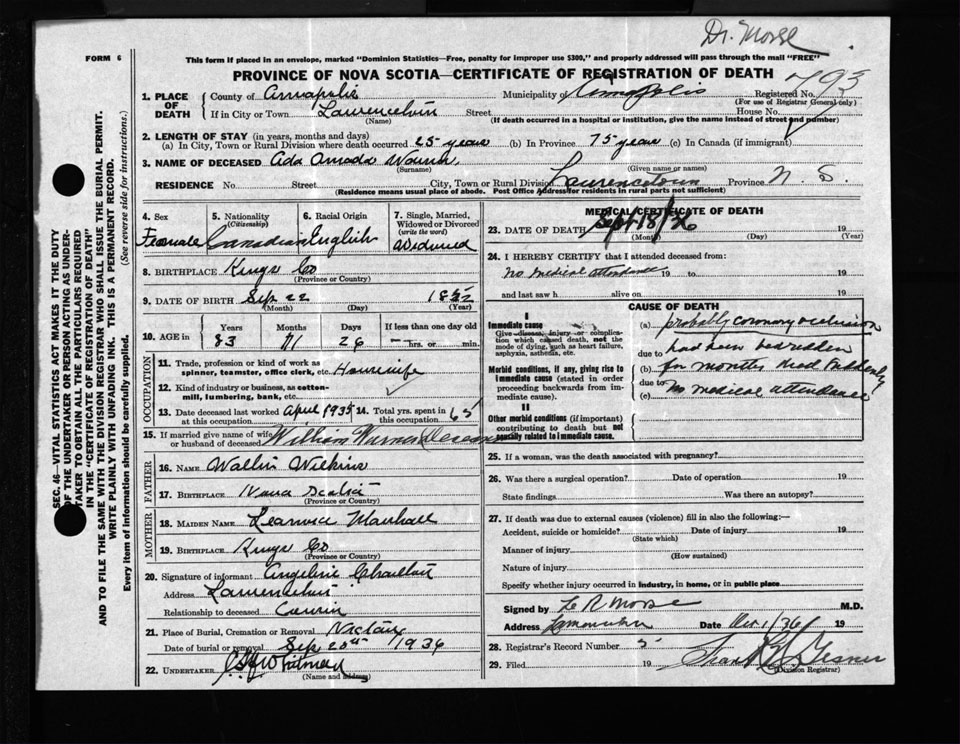 Dr. Morse
FORM 6
This form if placed in an envelope, marked "Dominion Statistics—Free, penalty for improper use $300," and properly addressed will pass through the mail "FREE"
PROVINCE OF NOVA SCOTIA—CERTIFICATE OF REGISTRATION OF DEATH
1. PLACE OF DEATH
County of Annapolis Municipality of Annapolis Registered No. 793
(For use of Registrar General only)
If in City or Town Street House No.
(Name) (If death occurred in a hospital or institution, give the name instead of street and number)
2. LENGTH OF STAY (in years, months and days)
(a) In City, Town or Rural Division where death occurred 25 years (b) In Province 75 years (c) In Canada (if immigrant)
3. NAME OF DECEASED Ada
(Surname) (Given name or names)
RESIDENCE No. Street City, Town or Rural Division Lawrencetown Province N S.
(Residence means usual place of abode. Post Office Address for residents in rural parts not sufficient)
4. Sex
Female
5. Nationality
(Citizenship)
Canadian
6. Racial Origin
English
7. Single, Married, Widowed or Divorced
(write the word)
Widowed
8. BIRTHPLACE Kings Co
(Province or Country)
9. DATE OF BIRTH Sep 22
(Month) (Day) (Year)
10. AGE in
Years Months Days If less than one day old
83 11 26 hrs. or min.
OCCUPATION
11. Trade, profession or kind of work as spinner, teamster, office clerk, etc. Housewife
12. Kind of industry or business, as cotton-mill, lumbering, bank, etc.
13. Date deceased last worked at this occupation April 1935
14. Total yrs. spent in this occupation 65
15. If married give name of wife or husband of deceased William
FATHER
16. NAME Wilkins
17. BIRTHPLACE Nova Scotia
(Province or Country)
MOTHER
18. MAIDEN NAME Marshall
19. BIRTHPLACE Kings Co
(Province or Country)
20. Signature of informant Angeline
Address
Relationship to deceased Cousin
21. Place of Burial, Cremation or Removal Nictaux
Date of burial or removal Sep 20th 1936
22. UNDERTAKER Whitman
(Name and address)
MEDICAL CERTIFICATE OF DEATH
23. DATE OF DEATH Sept 18/36
(Month) (Day) (Year)
24. I HEREBY CERTIFY that I attended deceased from:
no medical attendance 19 to 19
and last saw h alive on 19
CAUSE OF DEATH
I
Immediate cause
Give disease, injury or complication which caused death, not the mode of dying, such as heart failure, asphyxia, asthenia, etc.
Morbid conditions, if any, giving rise to immediate cause (stated in order proceeding backwards from immediate cause).
II
Other morbid conditions (if important) contributing to death but not causally related to immediate cause.
(a) probably coronary occlusion
due to had been bedridden
(b) for months died suddenly
due to
(c) No medical attendance
25. If a woman, was the death associated with pregnancy?
26. Was there a surgical operation? Date of operation 19
State findings Was there an autopsy?
27. If death was due to external causes (violence) fill in also the following:—
Accident, suicide or homicide? Date of injury 19
(State which)
Manner of injury
(How sustained)
Nature of injury
Specify whether injury occurred in industry, in home, or in public place
Signed by Morse M.D.
Address Date 1/36 19
28. Registrar's Record Number 5
29. Filed 19
(Division Registrar)
SEC. 46—VITAL STATISTICS ACT MAKES IT THE DUTY
OF THE UNDERTAKER OR PERSON ACTING AS UNDER-
TAKER TO OBTAIN ALL THE PARTICULARS REQUIRED
IN THE "CERTIFICATE OF REGISTRATION OF DEATH"
AND TO FILE THE SAME WITH THE DIVISION REGISTRAR WHO SHALL ISSUE THE BURIAL PERMIT.
WRITE PLAINLY WITH UNFADING INK. THIS IS A PERMANENT RECORD.
Every item of information should be carefully supplied. (See reverse side for instructions.)